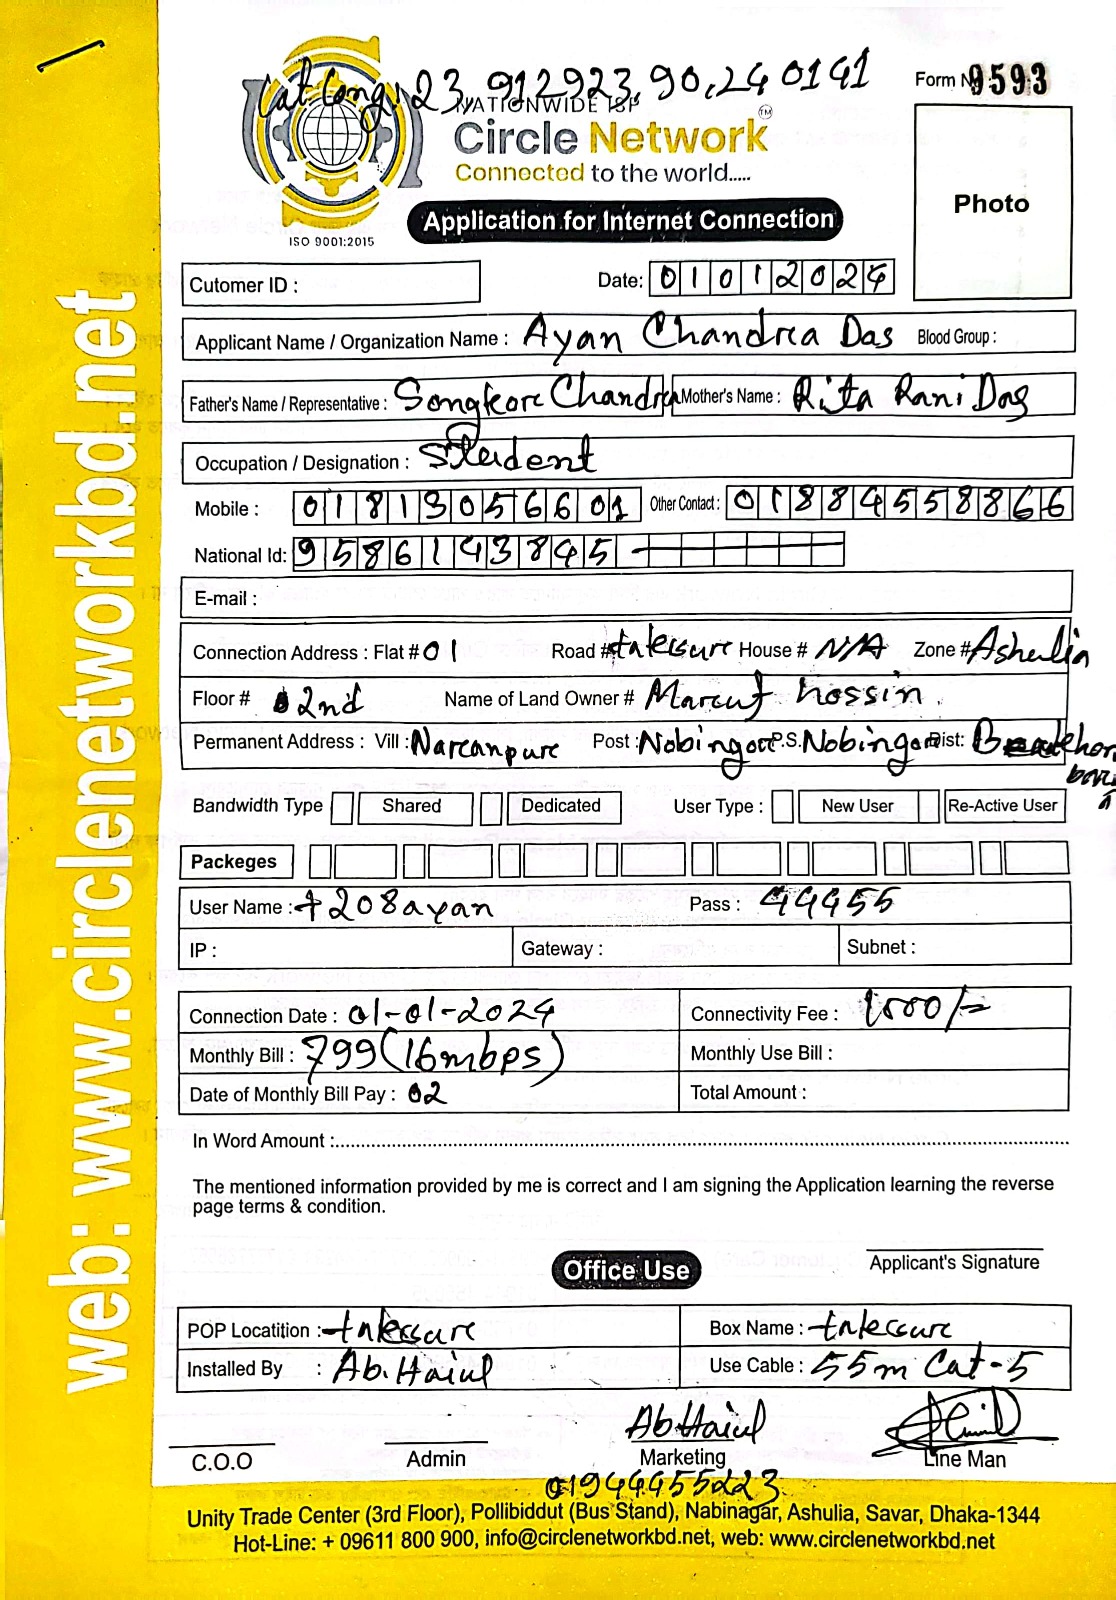 Lat Long: 23.912923, 90.240141
Form No 9593
NATIONWIDE ISP
Circle Network TM
Connected to the world.....
Photo
Application for Internet Connection
ISO 9001:2015
Cutomer ID :
Date: 01012024
Applicant Name / Organization Name : Ayan Chandra Das Blood Group :
Father's Name / Representative : Songkor Chandra Mother's Name : Rita Rani Das
Occupation / Designation : Student
Mobile : 01813056601 Other Contact : 01884558866
National Id: 9586143845
E-mail :
Connection Address : Flat # 01 Road # taleksure House # N/A Zone # Ashulia
Floor # 2nd Name of Land Owner # Maruf hossin
Permanent Address : Vill : Narayanpur Post : Nobingor P.S. Nobingor Dist: B
Bandwidth Type Shared Dedicated User Type : New User Re-Active User
Packeges
User Name : t208ayan Pass : 44455
IP : Gateway : Subnet :
Connection Date : 01-01-2024 Connectivity Fee : 1000/=
Monthly Bill : 799 (16mbps) Monthly Use Bill :
Date of Monthly Bill Pay : 02 Total Amount :
In Word Amount :
The mentioned information provided by me is correct and I am signing the Application learning the reverse
page terms & condition.
Office Use
Applicant's Signature
POP Locatition : Box Name :
Installed By : Ab. Haiul Use Cable : 55m Cat-5
Ab Haiul
C.O.O Admin Marketing Line Man
01944455223
Unity Trade Center (3rd Floor), Pollibiddut (Bus Stand), Nabinagar, Ashulia, Savar, Dhaka-1344
Hot-Line: + 09611 800 900, info@circlenetworkbd.net, web: www.circlenetworkbd.net
web: www.circlenetworkbd.net